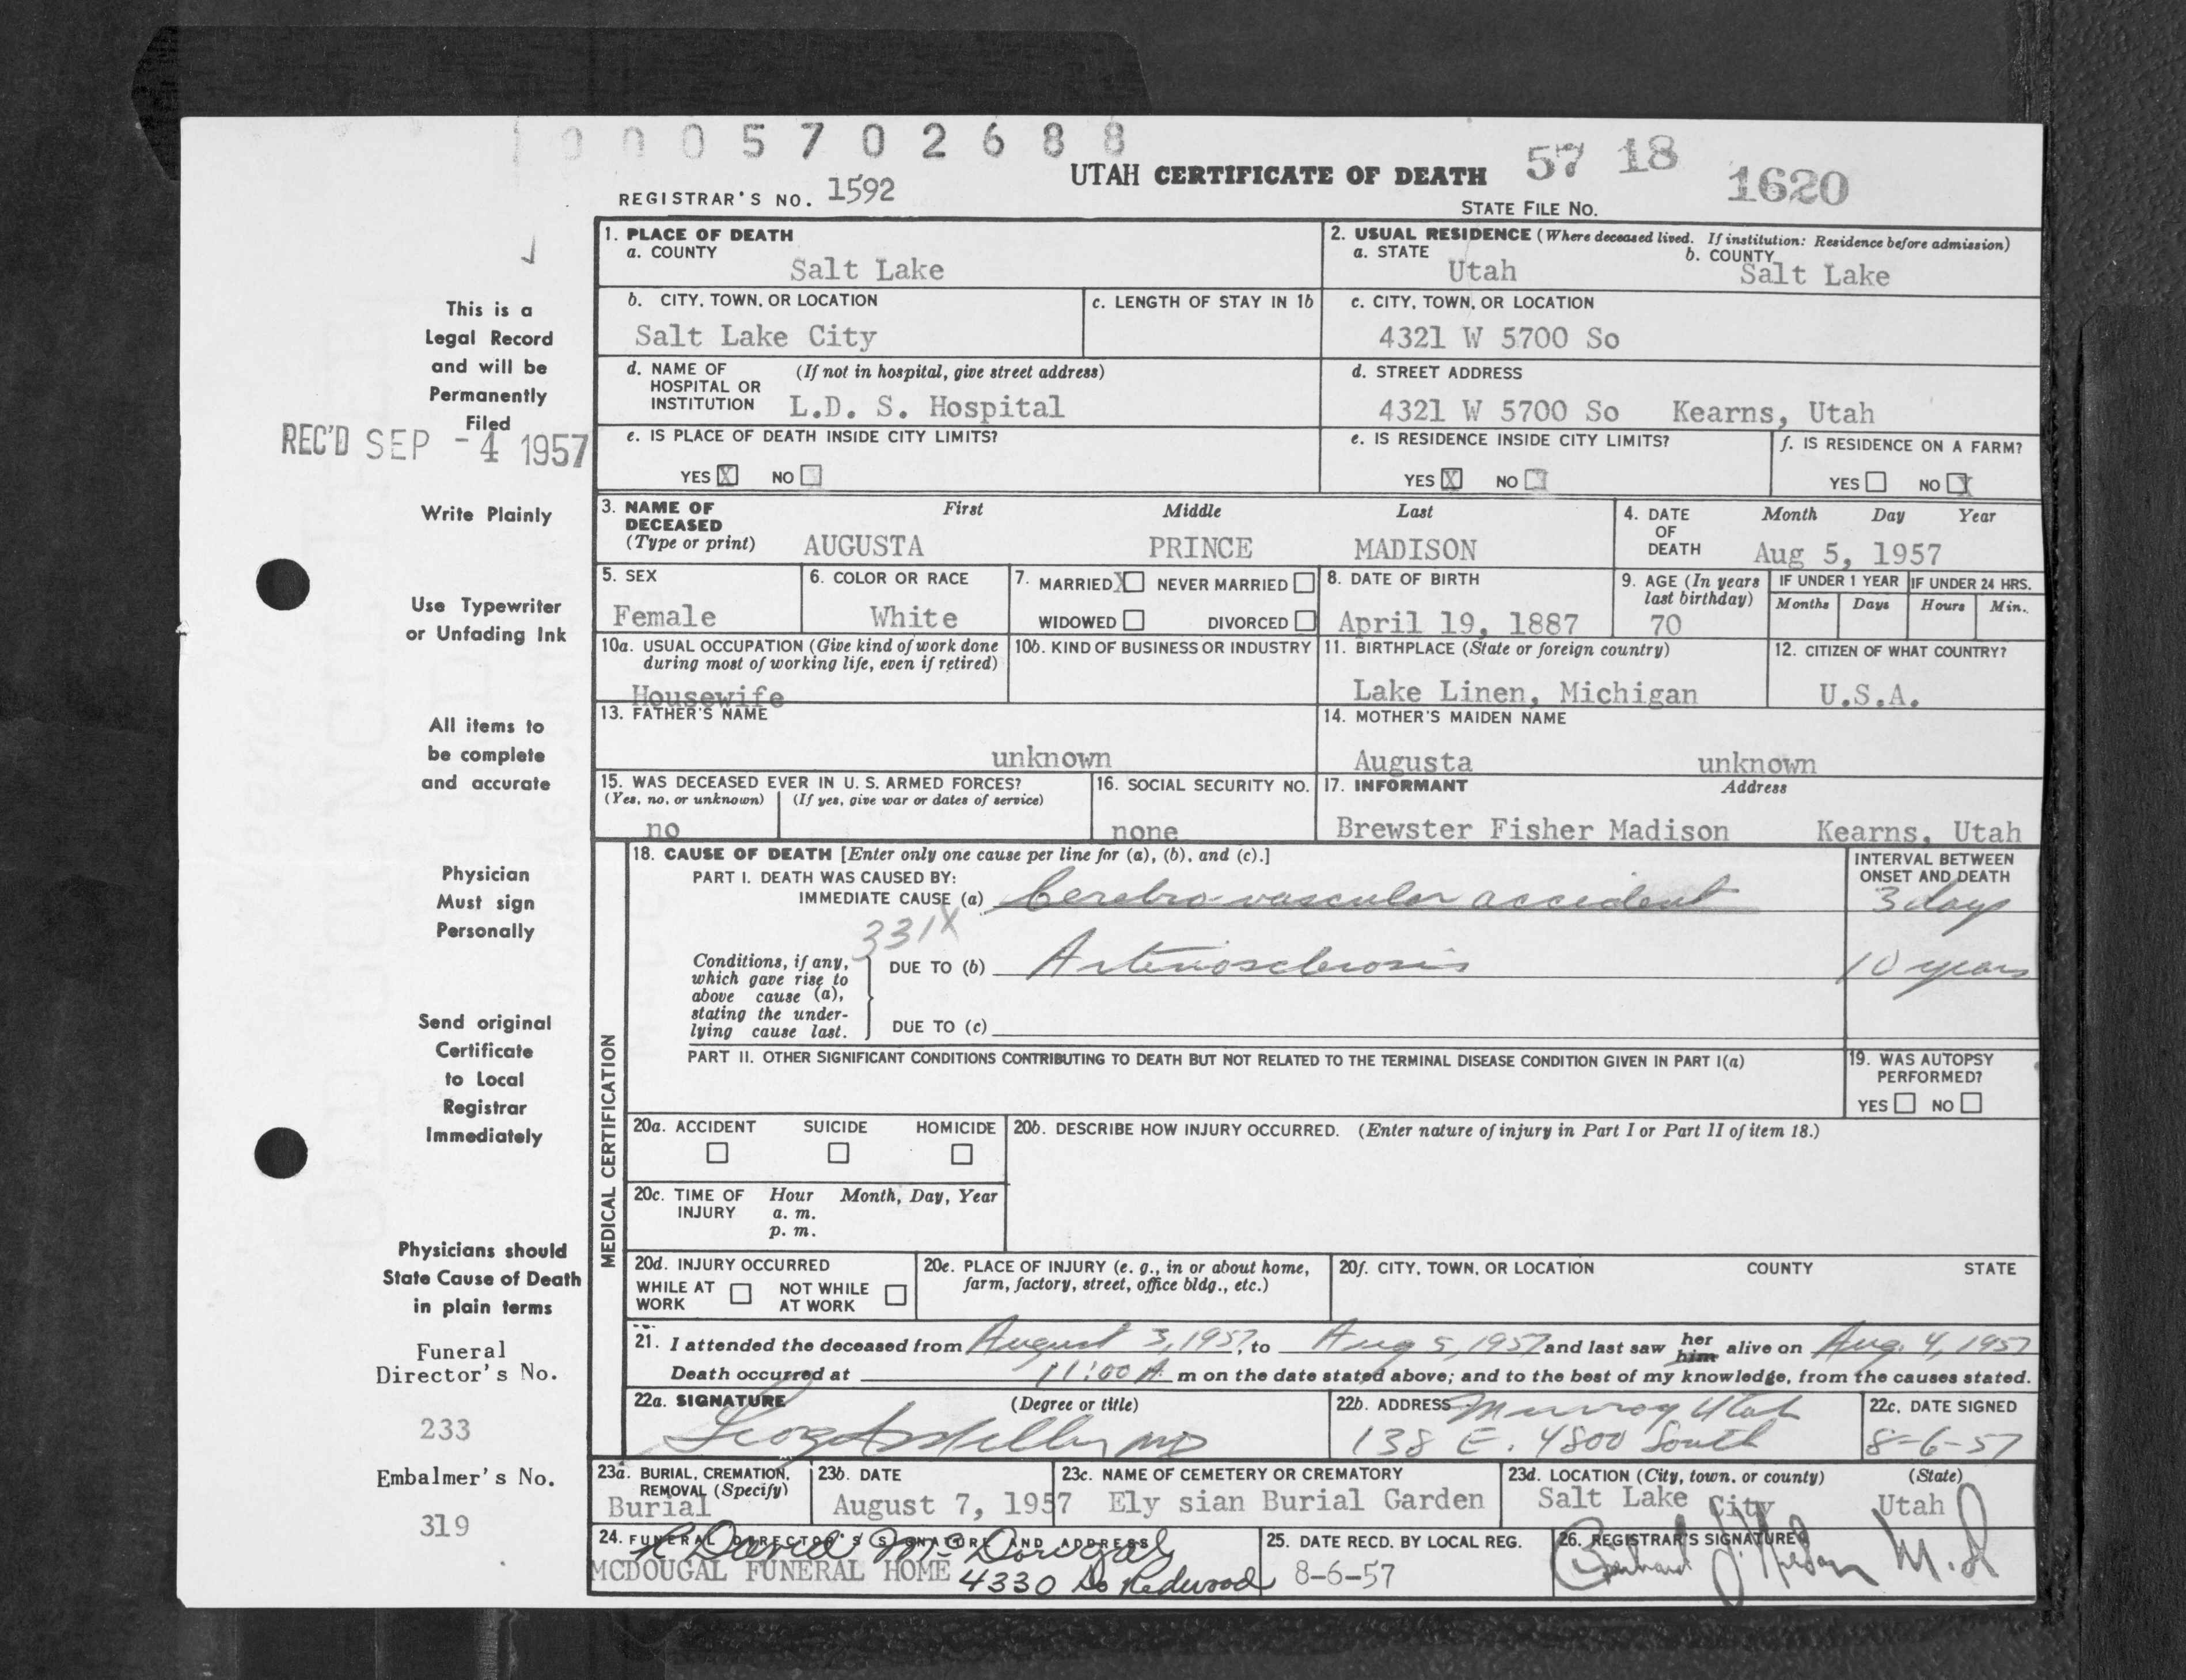 0 0 0 5 7 0 2 6 8 8
UTAH CERTIFICATE OF DEATH 57 18 1620
REGISTRAR'S NO. 1592
STATE FILE NO.
This is a
Legal Record
and will be
Permanently
Filed
REC'D SEP -4 1957
Write Plainly
Use Typewriter
or Unfading Ink
All items to
be complete
and accurate
Physician
Must sign
Personally
Send original
Certificate
to Local
Registrar
Immediately
Physicians should
State Cause of Death
in plain terms
Funeral
Director's No.
233
Embalmer's No.
319
1. PLACE OF DEATH
a. COUNTY
Salt Lake
2. USUAL RESIDENCE (Where deceased lived. If institution: Residence before admission)
a. STATE b. COUNTY
Utah Salt Lake
b. CITY, TOWN, OR LOCATION
Salt Lake City
c. LENGTH OF STAY IN 1b
c. CITY, TOWN, OR LOCATION
4321 W 5700 So
d. NAME OF (If not in hospital, give street address)
HOSPITAL OR
INSTITUTION L.D. S. Hospital
d. STREET ADDRESS
4321 W 5700 So Kearns, Utah
e. IS PLACE OF DEATH INSIDE CITY LIMITS?
YES X NO
e. IS RESIDENCE INSIDE CITY LIMITS?
YES X NO
f. IS RESIDENCE ON A FARM?
YES NO X
3. NAME OF First Middle Last
DECEASED
(Type or print) AUGUSTA PRINCE MADISON
4. DATE Month Day Year
OF
DEATH Aug 5, 1957
5. SEX
Female
6. COLOR OR RACE
White
7. MARRIED X NEVER MARRIED
WIDOWED DIVORCED
8. DATE OF BIRTH
April 19, 1887
9. AGE (In years
last birthday)
70
IF UNDER 1 YEAR IF UNDER 24 HRS.
Months Days Hours Min.
10a. USUAL OCCUPATION (Give kind of work done
during most of working life, even if retired)
Housewife
10b. KIND OF BUSINESS OR INDUSTRY
11. BIRTHPLACE (State or foreign country)
Lake Linen, Michigan
12. CITIZEN OF WHAT COUNTRY?
U.S.A.
13. FATHER'S NAME
unknown
14. MOTHER'S MAIDEN NAME
Augusta unknown
15. WAS DECEASED EVER IN U. S. ARMED FORCES?
(Yes, no, or unknown) (If yes, give war or dates of service)
no
16. SOCIAL SECURITY NO.
none
17. INFORMANT Address
Brewster Fisher Madison Kearns, Utah
MEDICAL CERTIFICATION
18. CAUSE OF DEATH [Enter only one cause per line for (a), (b), and (c).]
PART I. DEATH WAS CAUSED BY:
IMMEDIATE CAUSE (a) Cerebro-vascular accident
INTERVAL BETWEEN
ONSET AND DEATH
3 days
331X
Conditions, if any,
which gave rise to
above cause (a),
stating the under-
lying cause last.
DUE TO (b) Arteriosclerosis
10 years
DUE TO (c)
PART II. OTHER SIGNIFICANT CONDITIONS CONTRIBUTING TO DEATH BUT NOT RELATED TO THE TERMINAL DISEASE CONDITION GIVEN IN PART I(a)
19. WAS AUTOPSY
PERFORMED?
YES NO
20a. ACCIDENT SUICIDE HOMICIDE
20b. DESCRIBE HOW INJURY OCCURRED. (Enter nature of injury in Part I or Part II of item 18.)
20c. TIME OF Hour Month, Day, Year
INJURY a. m.
p. m.
20d. INJURY OCCURRED
WHILE AT NOT WHILE
WORK AT WORK
20e. PLACE OF INJURY (e. g., in or about home,
farm, factory, street, office bldg., etc.)
20f. CITY, TOWN, OR LOCATION COUNTY STATE
21. I attended the deceased from August 3, 1957, to Aug 5, 1957 and last saw her him alive on Aug. 4, 1957
Death occurred at 11:00 A. m on the date stated above; and to the best of my knowledge, from the causes stated.
22a. SIGNATURE (Degree or title)
MD
22b. ADDRESS Murray Utah
138 E. 4800 South
22c. DATE SIGNED
8-6-57
23a. BURIAL, CREMATION,
REMOVAL (Specify)
Burial
23b. DATE
August 7, 1957
23c. NAME OF CEMETERY OR CREMATORY
Ely sian Burial Garden
23d. LOCATION (City, town, or county) (State)
Salt Lake City Utah
24. FUNERAL DIRECTOR'S SIGNATURE AND ADDRESS
R David McDougal
MCDOUGAL FUNERAL HOME 4330 So Redwood
25. DATE RECD. BY LOCAL REG.
8-6-57
26. REGISTRAR'S SIGNATURE
M.D